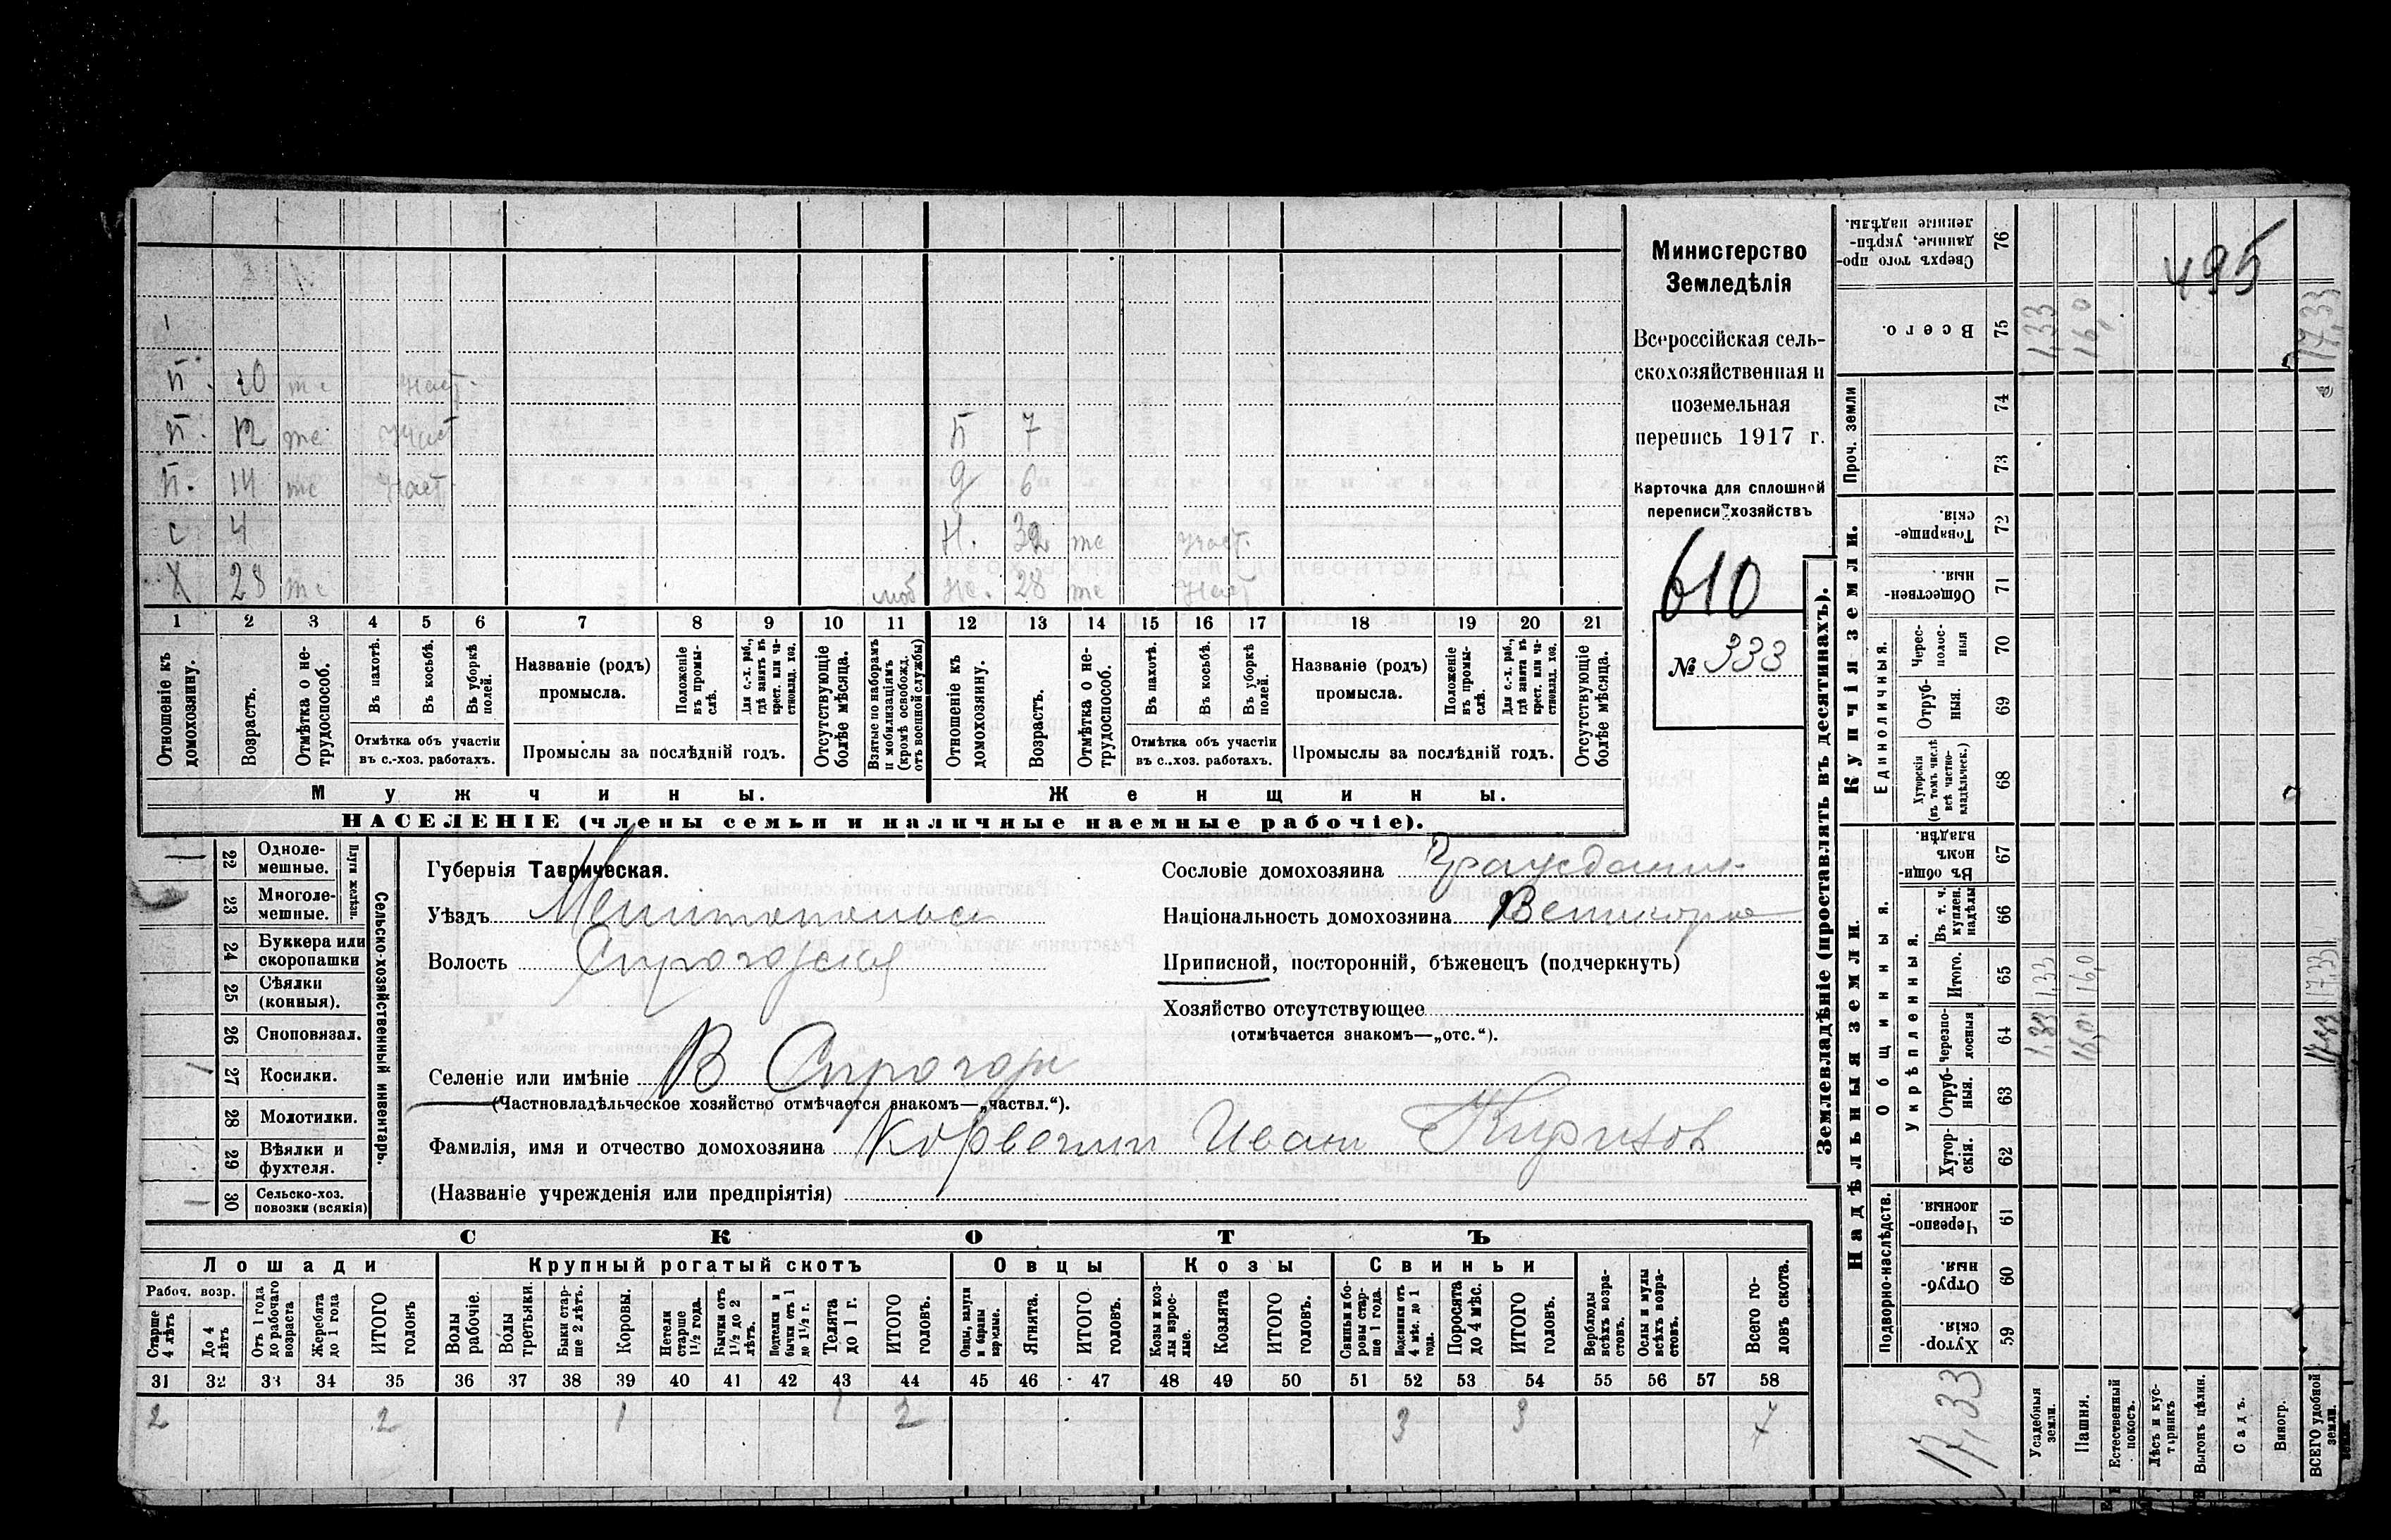 495
Министерство
Земледѣлія
Всероссійская сель-
скохозяйственная и
поземельная
перепись 1917 г.
Карточка для сплошной
переписи хозяйствъ
610
№ 333
П. 10 те
П. 12 те П 7
П. 14 те 6
с 4 Н. 32 те
Х 28 те моб Же. 28 те
1 2 3 4 5 6 7 8 9 10 11 12 13 14 15 16 17 18 19 20 21
Отношеніе къ домохозяину.
Возрастъ.
Отмѣтка о не-трудоспособ.
Въ пахотѣ.
Въ косьбѣ.
Въ уборкѣ полей.
Отмѣтка объ участіи
въ с.-хоз. работахъ.
Названіе (родъ)
промысла.
Положеніе въ промы-слѣ.
Для с.-х. раб., гдѣ занятъ въ крест. или ча-стновлад. хоз.
Промыслы за послѣдній годъ.
Отсутствующіе болѣе мѣсяца.
Взятые по наборамъ и мобилизаціямъ (кромѣ освобожд. отъ военной службы)
Отношеніе къ домохозяину.
Возрастъ.
Отмѣтка о не-трудоспособ.
Въ пахотѣ.
Въ косьбѣ.
Въ уборкѣ полей.
Отмѣтка объ участіи
въ с.-хоз. работахъ.
Названіе (родъ)
промысла.
Положеніе въ промы-слѣ.
Для с.-х. раб., гдѣ занята въ крест. или ча-стновлад. хоз.
Промыслы за послѣдній годъ.
Отсутствующіе болѣе мѣсяца.
Мужчины. Женщины.
НАСЕЛЕНІЕ (члены семьи и наличные наемные рабочіе).
22 Одноле-мешные.
23 Многоле-мешные.
Плуги желѣзн.
24 Буккера или скоропашки
25 Сѣялки (конныя).
26 Сноповязал.
27 Косилки.
28 Молотилки.
29 Вѣялки и фухтеля.
30 Сельско-хоз. повозки (всякія)
Сельско-хозяйственный инвентарь.
Губернія Таврическая.
Уѣздъ Мелитопольск
Волость
Селеніе или имѣніе В
(Частновладѣльческое хозяйство отмѣчается знакомъ—„частвл.“).
Фамилія, имя и отчество домохозяина Корвегин Иван
(Названіе учрежденія или предпріятія)
Сословіе домохозяина Граждани
Національность домохозяина Великорос
Приписной, посторонній, бѣженецъ (подчеркнуть)
Хозяйство отсутствующее
(отмѣчается знакомъ—„отс.“).
СКОТЪ
Лошади Крупный рогатый скотъ Овцы Козы Свиньи
Рабоч. возр.
Старше 4 лѣтъ
До 4 лѣтъ
Отъ 1 года до рабочаго возраста
Жеребята до 1 года
ИТОГО головъ
Волы рабочіе.
Волы третьяки.
Быки стар-ше 2 лѣтъ.
Коровы.
Нетели старше 1½ года.
Бычки отъ 1½ до 2 лѣтъ.
Подтелки и бычки отъ 1 до 1½ г.
Телята до 1 г.
ИТОГО головъ.
Овцы, валухи и бараны взрослые.
Ягнята.
ИТОГО головъ.
Козы и коз-лы взрос-лые.
Козлята
ИТОГО головъ.
Свиньи и бо-ровы стар-ше 1 года.
Подсвинки отъ 4 мѣс. до 1 года.
Поросята до 4 мѣс.
ИТОГО головъ.
Верблюды всѣхъ возра-стовъ.
Ослы и мулы всѣхъ возра-стовъ.
Всего го-ловъ скота.
31 32 33 34 35 36 37 38 39 40 41 42 43 44 45 46 47 48 49 50 51 52 53 54 55 56 57 58
2 2 1 1 2 3 3 7
Землевладѣніе (проставлять въ десятинахъ).
Надѣльныя земли. Купчія земли. Проч. земли
Подворно-наслѣдств.
Общинныя.
Укрѣпленныя.
Единоличныя.
Хутор-скія. 59
Отруб-ныя. 60
Черезпо-лосныя 61
Хутор-скія. 62
Отруб-ныя. 63
Черезпо-лосныя 64
Итого. 65
Въ т. ч. куплен. надѣлы 66
Въ общин-номъ владѣн. 67
Хуторскія (въ томъ числѣ всѣ частно-владѣльческ.) 68
Отруб-ныя. 69
Черес-полос-ныя 70
Обществен-ныя 71
Товарище-скія. 72
73
74
Всего. 75
Сверхъ того про-данные, укрѣп-ленные надѣлы. 76
17,33
Усадебныя земли. 1,33 1,33 1,33
Пашня. 16,0 16,0 16,0
Естественный покосъ.
Лѣсъ и кус-тарникъ
Выгонъ цѣлин.
Садъ.
Виногр.
ВСЕГО удобной земли. 17,33 17,33 17,33